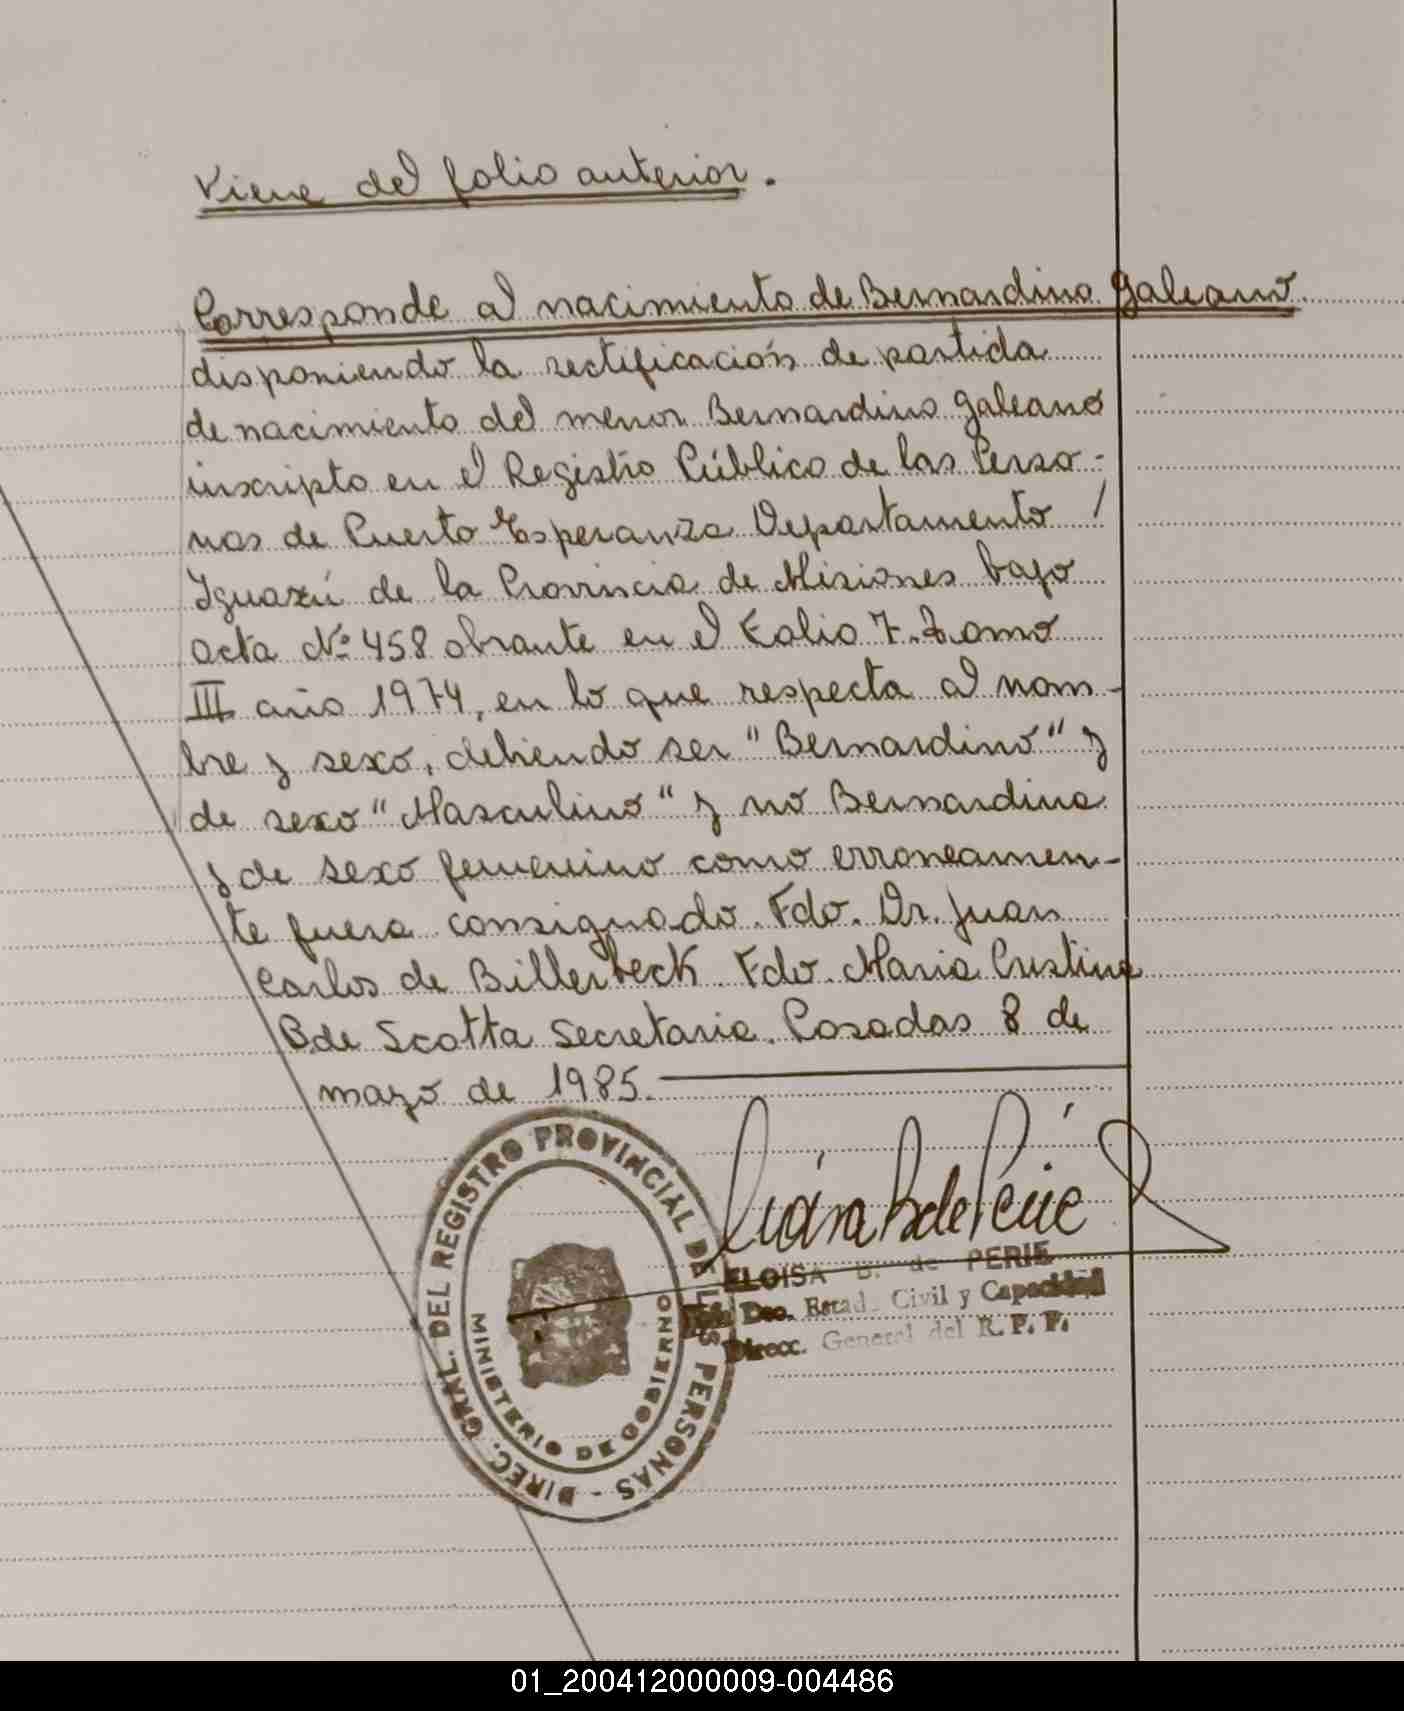 Viene del folio anterior.
Corresponde al nacimiento de Bernardino Galeano.
disponiendo la rectificación de partida
de nacimiento del menor Bernardino Galeano
inscripto en el Registro Público de las Perso-
nas de Puerto Esperanza Departamento /
Iguazú de la Provincia de Misiones bajo
acta Nº 458 obrante en el Folio 7. Tomo
III año 1974, en lo que respecta al nom-
bre y sexo, debiendo ser "Bernardino" y
de sexo "Masculino" y no Bernardina
y de sexo femenino como erroneamen-
te fuera consignado. Fdo. Dr. Juan
Carlos de Billerbeck. Fdo. Maria Cristina
B de Scotta Secretaria. Posadas 8 de
mayo de 1985.
DIREC. GRAL. DEL REGISTRO PROVINCIAL DE LAS PERSONAS -
MINISTERIO DE GOBIERNO
ELOISA B. de PERIE
Dco. Estad. Civil y Capacidad
Direcc. General del R. P. P.
01_200412000009-004486